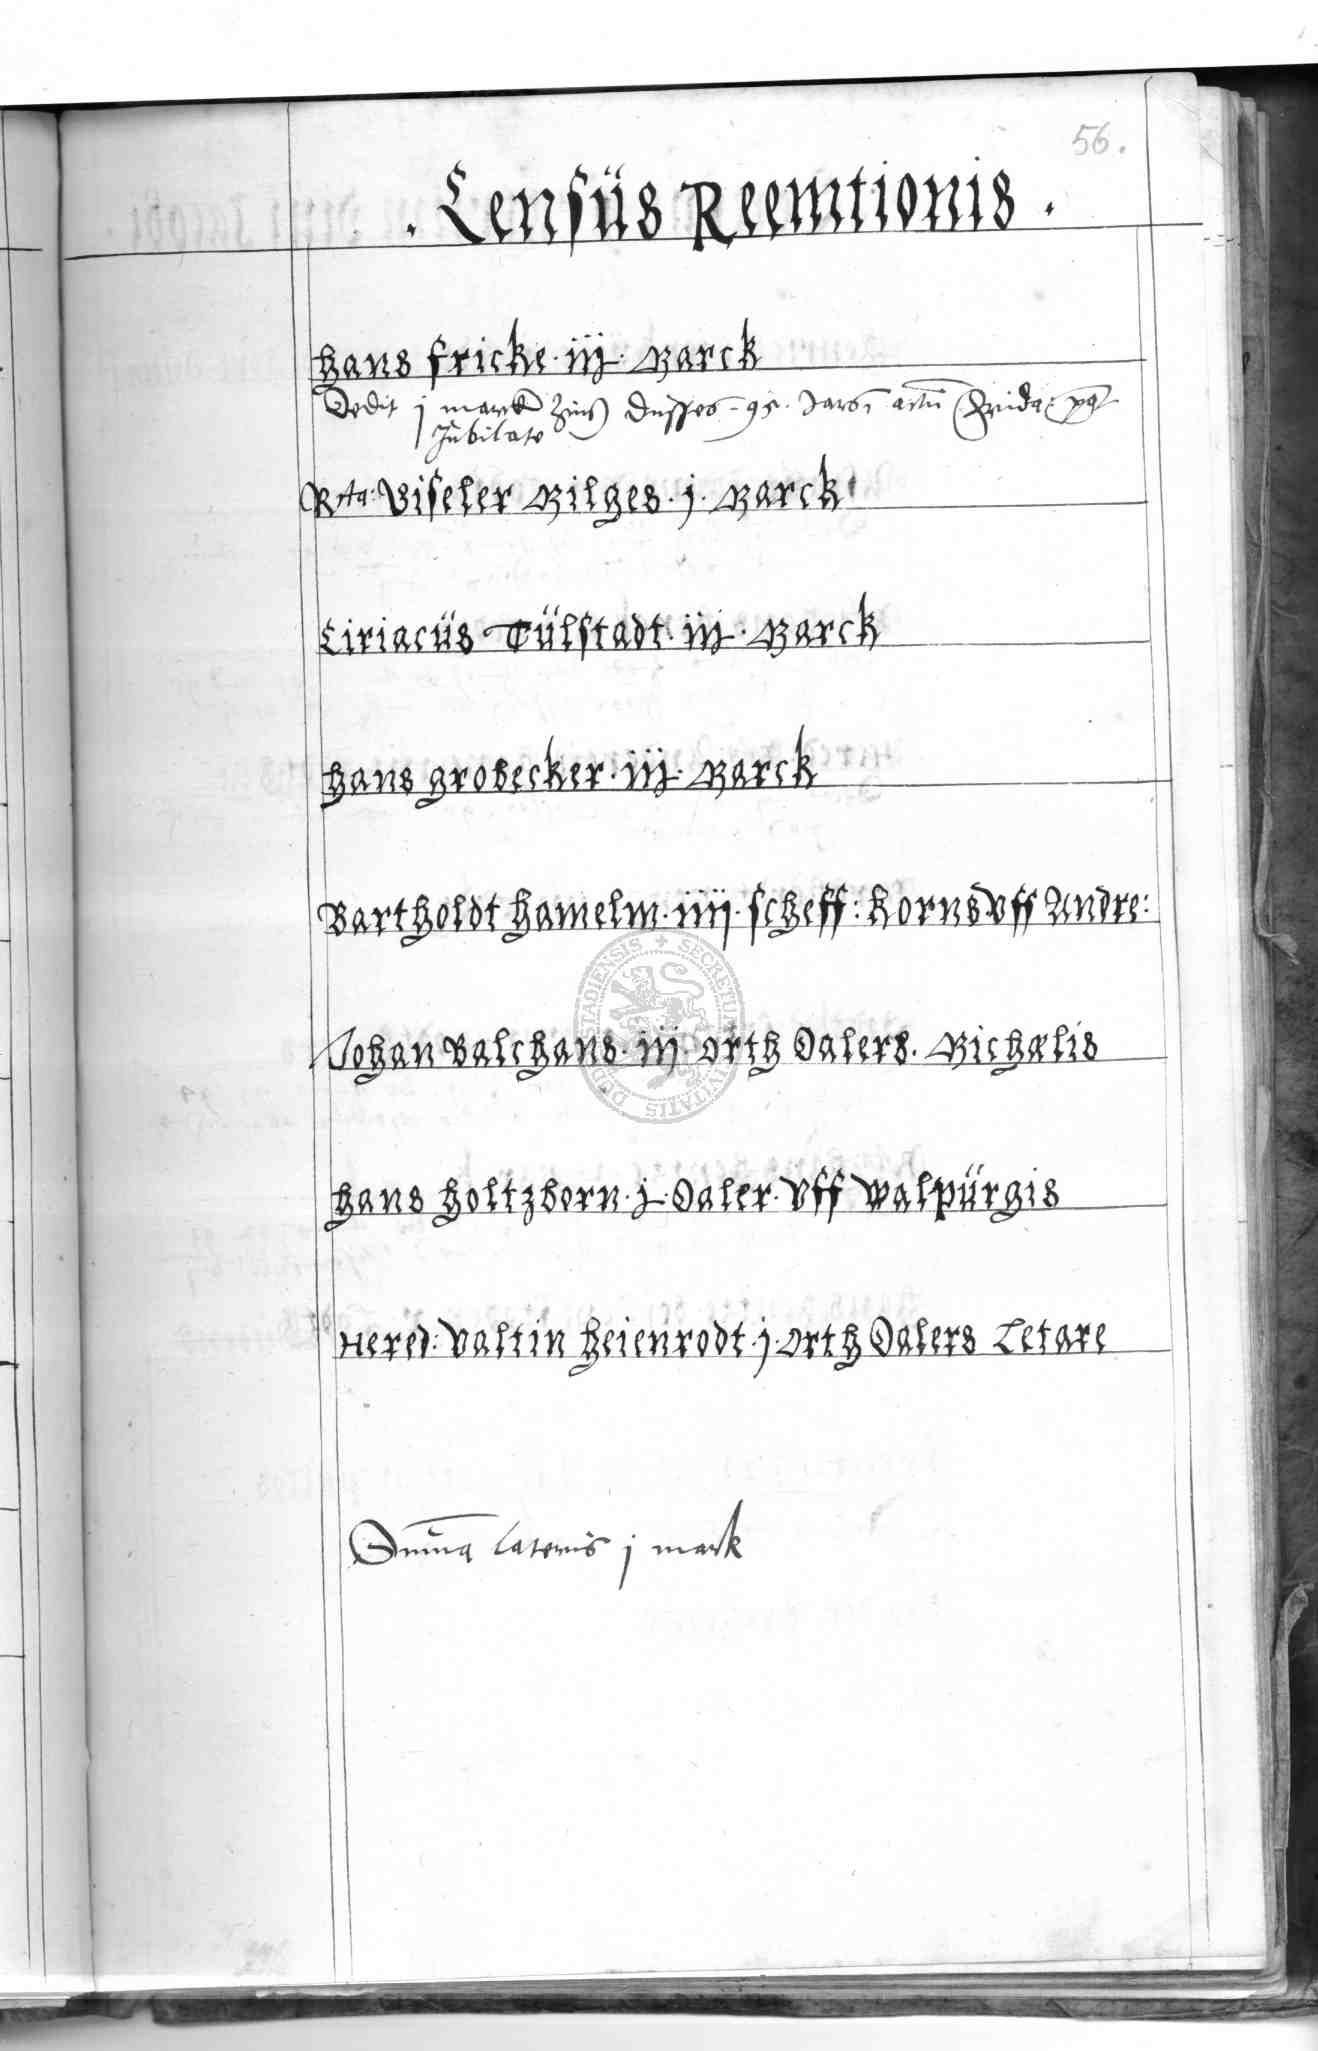 56.
. Censüs Reemtionis .
Hans fricke . iij . Marck
Dedit j marck Zins disses 95. Jars actum Frida: post
Jubilate
Rta: Viseler Milges . j . Marck
Ciriacüs Tülstadt . iij . Marck
Hans Grobecker . iij . Marck
Bartholdt Hamelm . iiij . scheff: Korns vff Andre:
Johan Balchans . iij . orth Dalers . Michælis
Hans Holtzborn . j . Daler . Vff Walpürgis
Hered: Valtin Heienrodt . j . orth Dalers Letare
Suma lateris j mark
SECRETUM CIVITATIS STADIENSIS